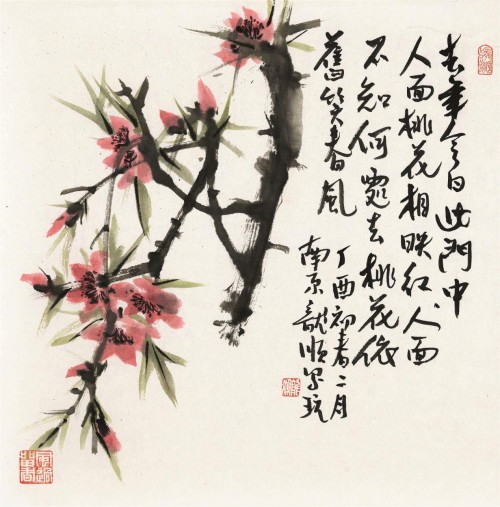 去年今日此門中
人面桃花相映红人面
不知何處去桃花依
舊笑春風
丁酉初春二月
南京順写玩